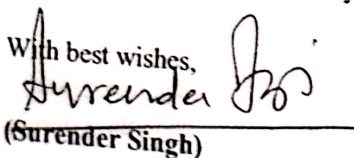 With best wishes,
Surender
(Surender Singh)